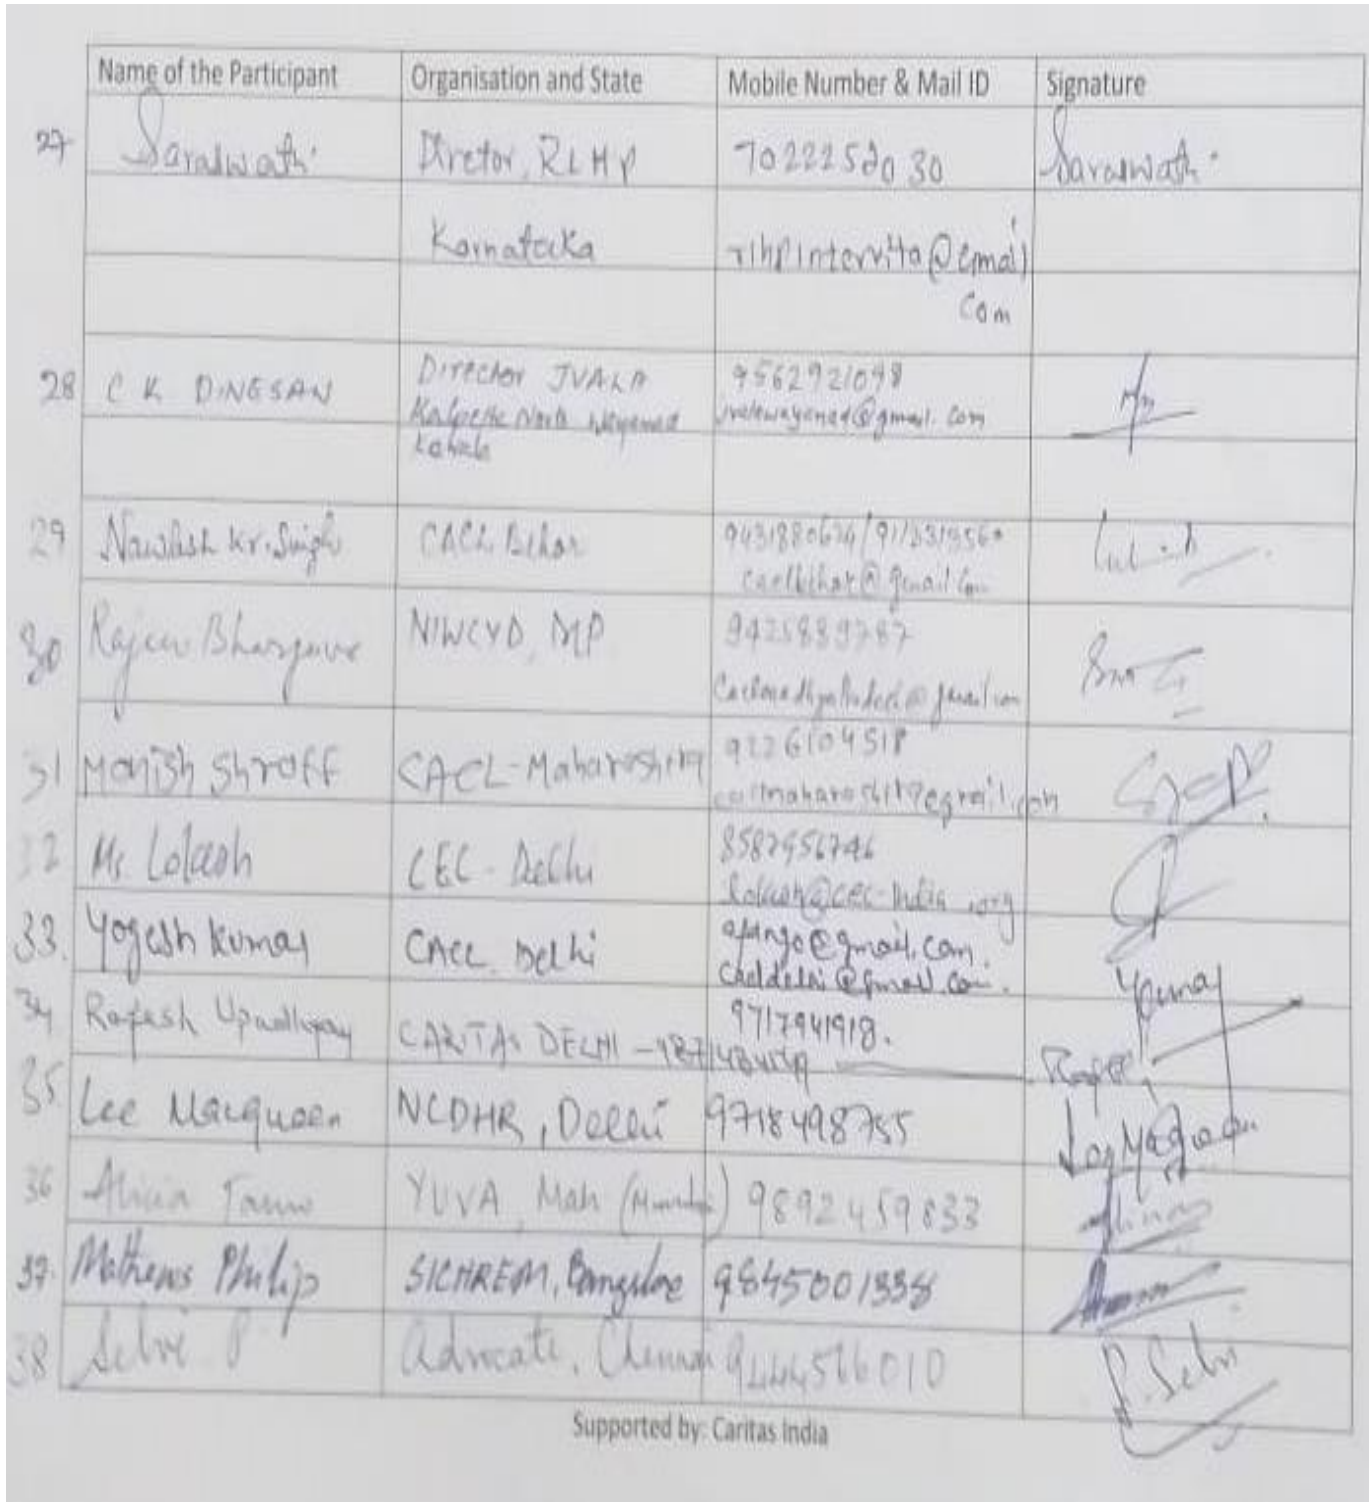 Name of the Participant Organisation and State Mobile Number & Mail ID Signature
27 Saraswathi Diretor, RLHP 70222520 30 Saraswathi
Karnataka rlhpintervita@gmail
com
28 C K DINESAN Director JVALA 9562921098
Kalpetta North Wayanad jvalawayanad@gmail.com
Kerala
29 Nawlesh Kr. Singh CACL Bihar
caclbihar@gmail.com
30 Rajeev Bhargava NIWCYD, MP 9425889787
caclmadhyapradesh@gmail.com
31 Manish Shroff CACL-Maharashtra 9226104518
32 Mr Lokesh CEC-Delhi 8587956746
lokesh@cec-india.org
33. Yogesh Kumar CACL Delhi @gmail.com.
cacldelhi@gmail.com.
34 Rajesh Upadhyay CARITAS DELHI - 9717941918.
35. Lee Macqueen NCDHR, Delhi 9718498755
36 Alicia Tauro YUVA, Mah (Mumbai) 9892459833
37. Mathews Philip SICHREM, Bangalore 9845001338
38 Selvi P Advocate, Chennai 9444516010 P. Selvi
Supported by: Caritas India